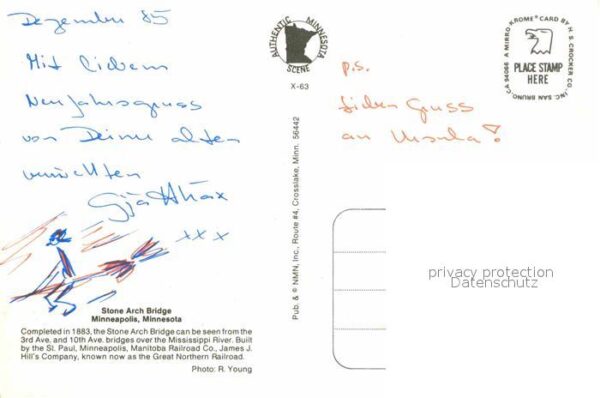 Dezember 85
Mit liebem
Neujahrsgruss
von Deiner alten
verrückten
xxx
Stone Arch Bridge
Minneapolis, Minnesota
Completed in 1883, the Stone Arch Bridge can be seen from the
3rd Ave. and 10th Ave. bridges over the Mississippi River. Built
by the St. Paul, Minneapolis, Manitoba Railroad Co., James J.
Hill's Company, known now as the Great Northern Railroad.
Photo: R. Young
AUTHENTIC MINNESOTA
SCENE
X-63
Pub. & © NMN, Inc., Route #4, Crosslake, Minn. 56442
p.s.
lieben Gruss
an Ursula!
A MIRRO KROME® CARD BY H. S. CROCKER CO. INC. SAN BRUNO, CA 94066
PLACE STAMP
HERE
privacy protection
Datenschutz